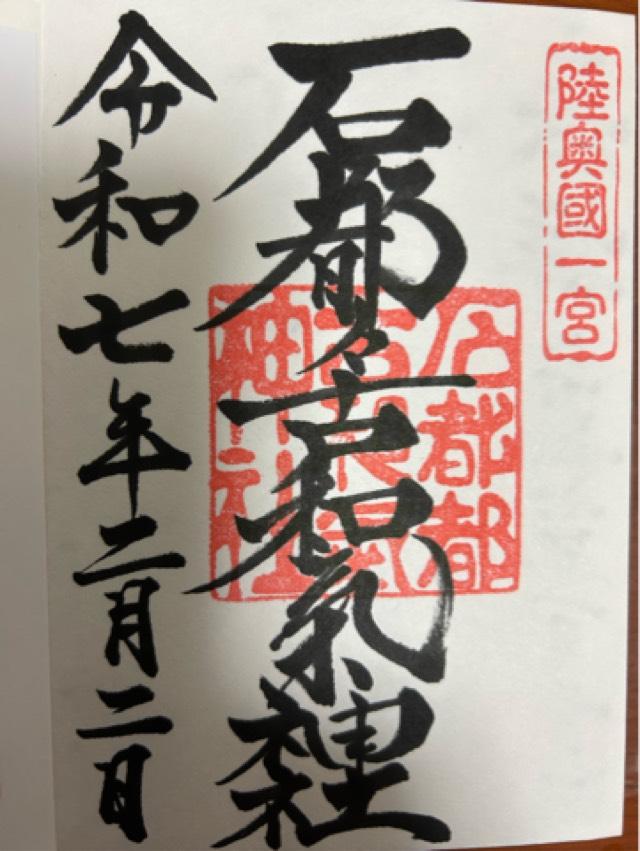 陸奥國一宮
石都々古和氣神社
石都都
古和氣
神社
令和七年二月二日